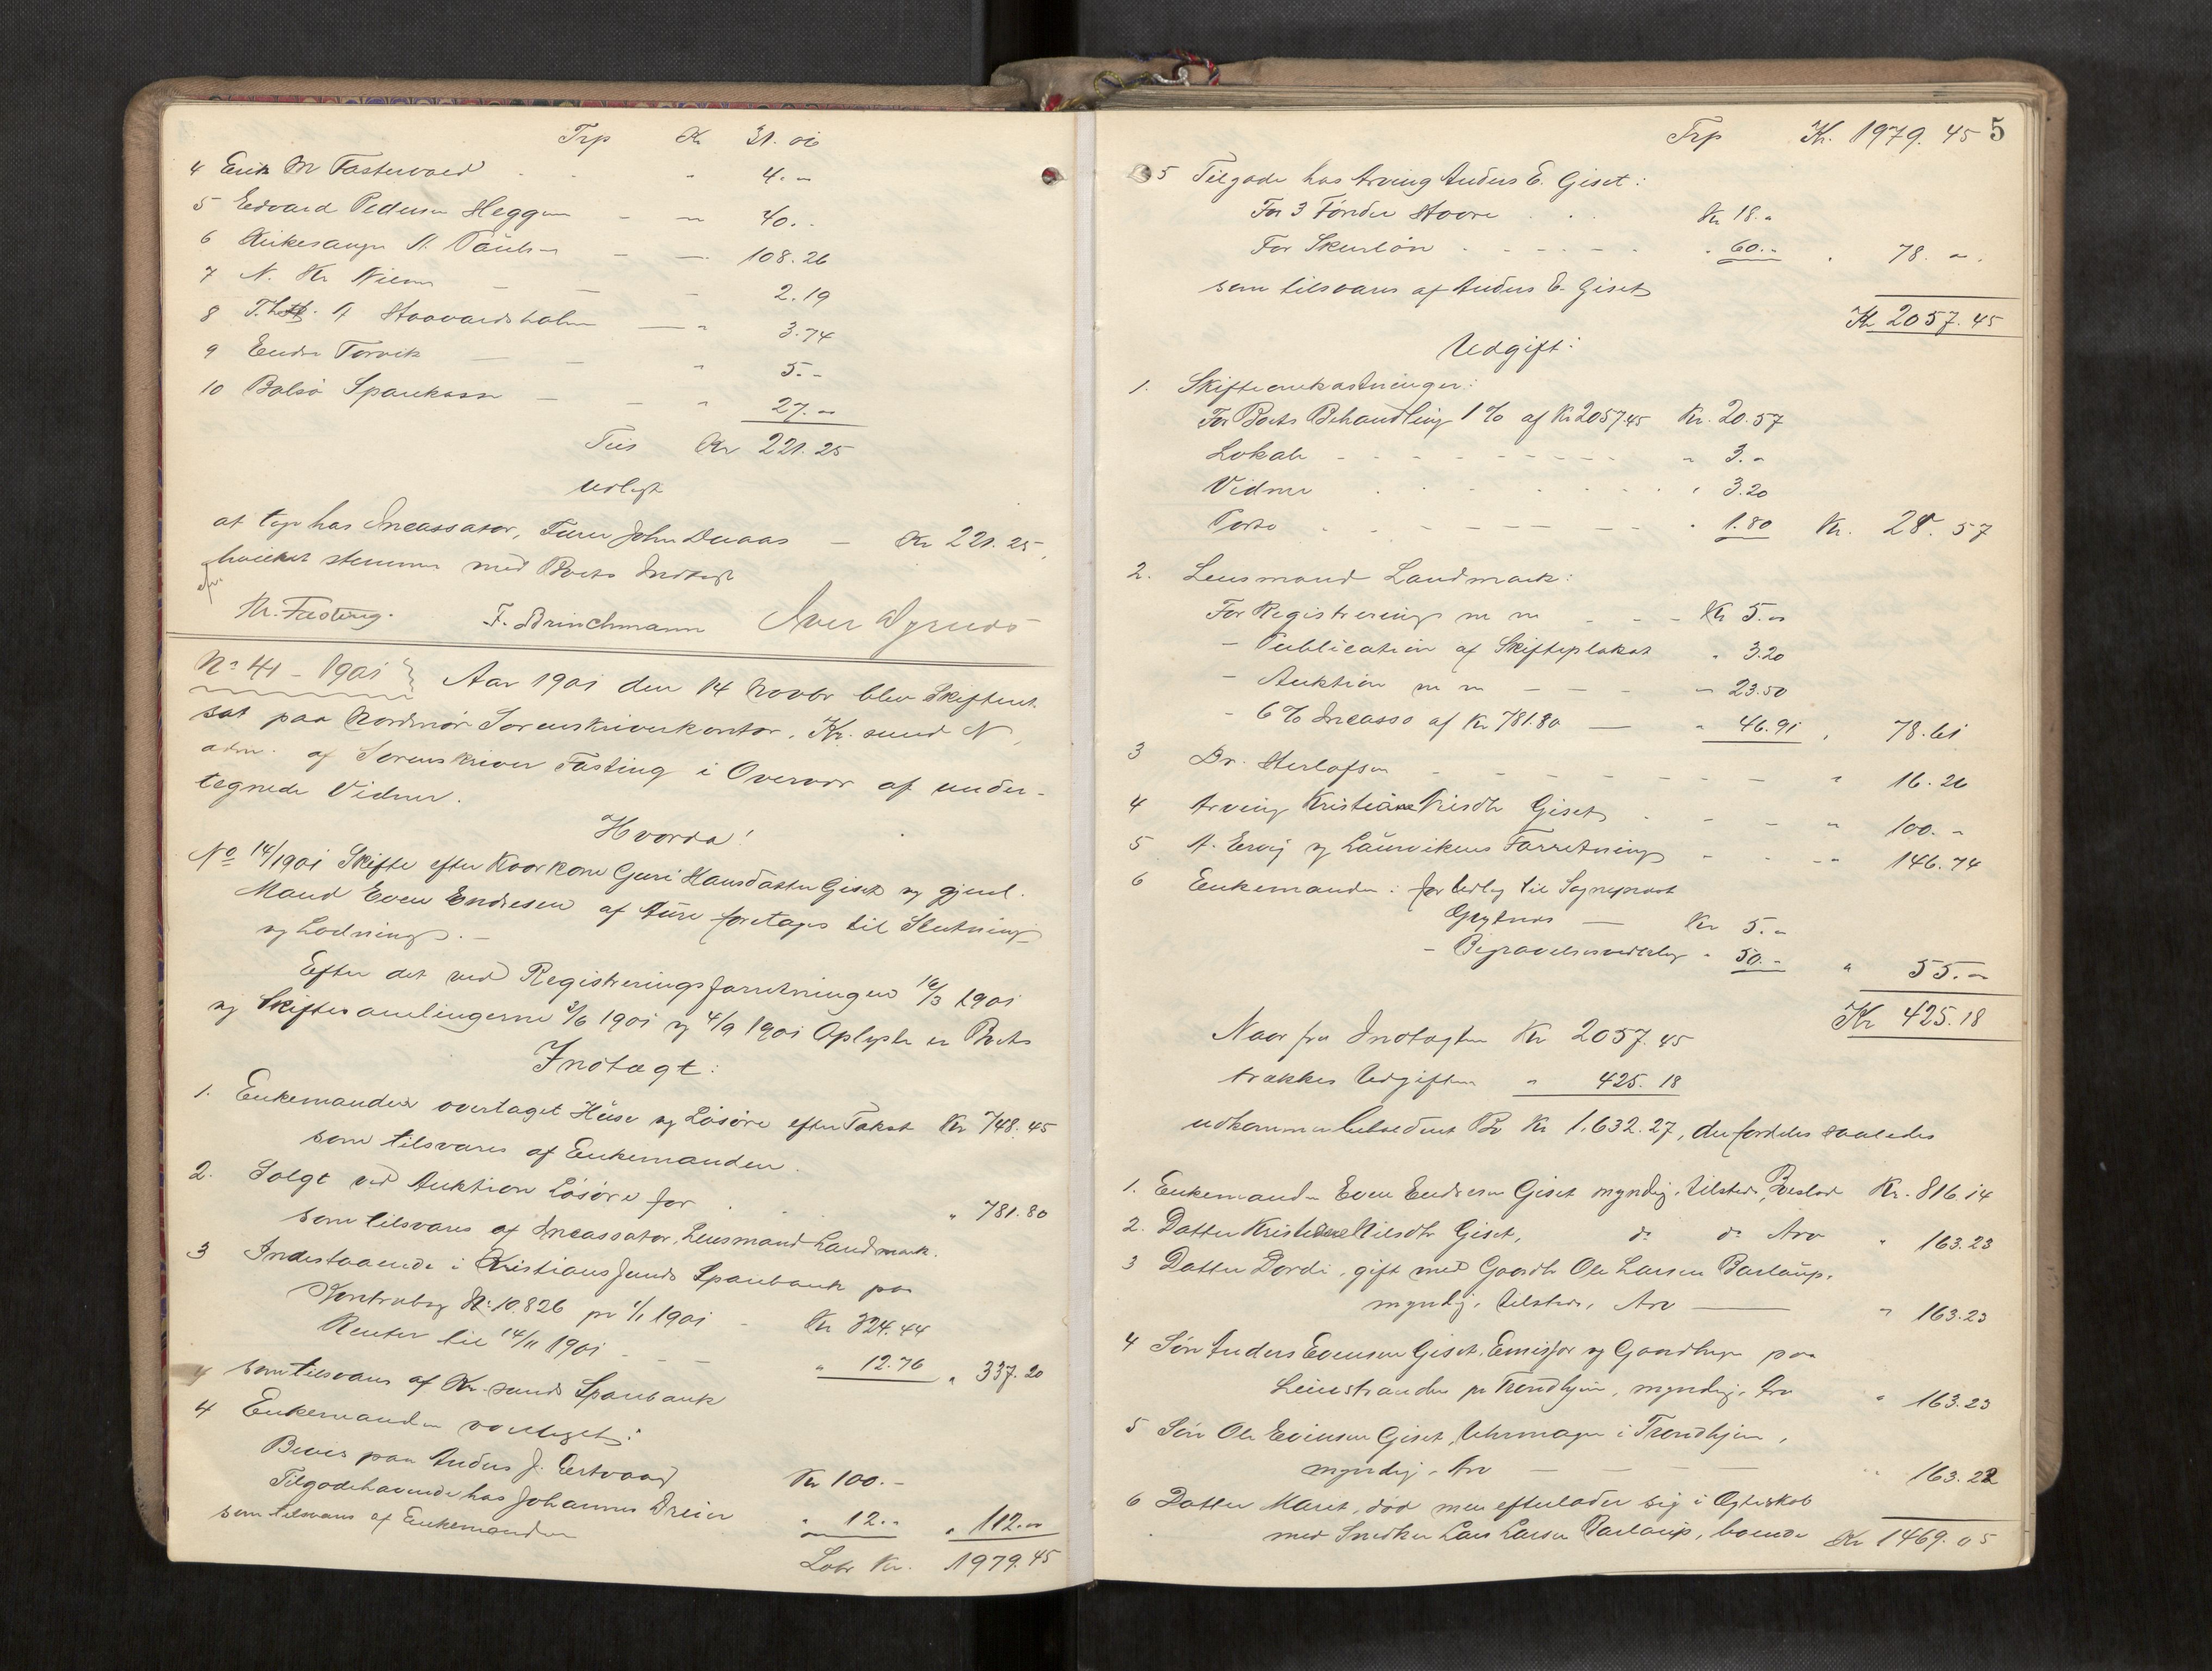 Trp Kr 31.06
4 Erik M Fastervold " 4.-
5 Edvard Pedersen Heggem - - 40.-
6 Kirkesanger A. Paulsen - - 108.26
7 N. Kr. - - - 2.19
8 A Haavardsholm - " 3.74
9 Endre Torvik - - " 5.-
10 Bolsø Sparekasse - - " 27.-
Tils Kr 221.25
Udlagt
at tage hos Incassator, John - Kr 221.25,
hvilket stemmer med Boets Indtægt
Th. Fasting. F. Brinchmann Iver
No 41 - 1901 } Aar 1901 den 14 Novbr blev Skifteret
sat paa Nordmør Sorenskriverkontor, Kr.sund N,
adm. af Sorenskriver Fasting i Overvær af under-
tegnede Vidner.
Hvorda!
No 14/1901 Skifte efter Kaarkone Guri Hansdatter Giset og gjenl.
Mand Even Endresen af Aure foretages til Slutning
og Lodning.-
Efter det ved Registreringsforretningen 16/3 1901
og Skiftesamlingerne 3/6 1901 og 4/9 1901 Oplyste er Boets
Indtægt:
1. Enkemanden overtaget Huse og Løsøre efter Takst Kr 748.45
som tilsvares af Enkemanden.
2. Solgt ved Auktion Løsøre for " 781.80
som tilsvares af Incassator, Lensmand Landmark.
3 Indestaaende i Kristianssunds Sparebank paa
Kontrabog No 10.826 pr 1/1 1901 - Kr 324.44
Renter til 14/11 1901 - - - " 12.76 " 337.20
som tilsvares af Kr.sunds Sparebank
4 Enkemanden vedlaget:
Bevis paa Anders J. Ertvaag Kr 100.-
Tilgodehavende hos Johannes Dreier " 12.- " 112.-
som tilsvares af Enkemanden
Latr Kr. 1979.45
Trp Kr. 1979.45 5
5 Tilgode hos Arving Anders E. Giset:
For 3 Tønder Havre . . Kr 18.-
For Skurløn - - - - - " 60.- " 78.-
som tilsvares af Anders E. Giset
Kr 2057.45
Udgift:
1. Skifteomkostninger:
For Boets Behandling 1% af Kr 2057.45 Kr. 20.57
Lokale - - - - - - - - " 3.-
Vidner . . . . . . " 3.20
Porto . - - - - - - - " 1.80 Kr. 28.57
2. Lensmand Landmark:
For Registrering m m - - - Kr 5.-
- Publication af Skifteplakat " 3.20
- Auktion m m - - - - 23.50
- 6% Incasso af Kr 781.80 - " 46.91 " 78.61
3 Dr. Herlofsen - - - - - - - - " 16.26
4 Arving Kristiane Nilsdtr Giset . - - - " 100.-
5 A. Ervig og Laurvikens Forretning - - - " 146.74
6 Enkemanden: for Udlæg til Sogneprest
Grytnes - Kr 5.-
- Begravelsesvederlag " 50.- " 55.-
Kr 425.18
Naar fra Indtægten Kr 2057.45
trækkes Udgiften " 425.18
udkommer beholdent Bo Kr 1.632.27, der fordeles saaledes
1. Enkemanden Even Endresen Giset myndig, tilstede, Boeslod Kr. 816.14
2. Datter Kristiane Nilsdtr Giset, do do Arv " 163.23
3 Datter Dordi, gift med Gaardbr Ole Larsen Barlaup,
myndig, tilstede, Arv - " 163.23
4 Søn Anders Evensen Giset, Emissær og Gaardbruger paa
Leinstranden pr Trondhjem, myndig, Arv " 163.23
5 Søn Ole Evensen Giset, Uhrmager i Trondhjem,
myndig, Arv - - - " 163.22
6 Datter Marit, død men efterlader sig i Ægteskab
med Snedker Lars Larsen Barlaup, boende Kr 1469.05